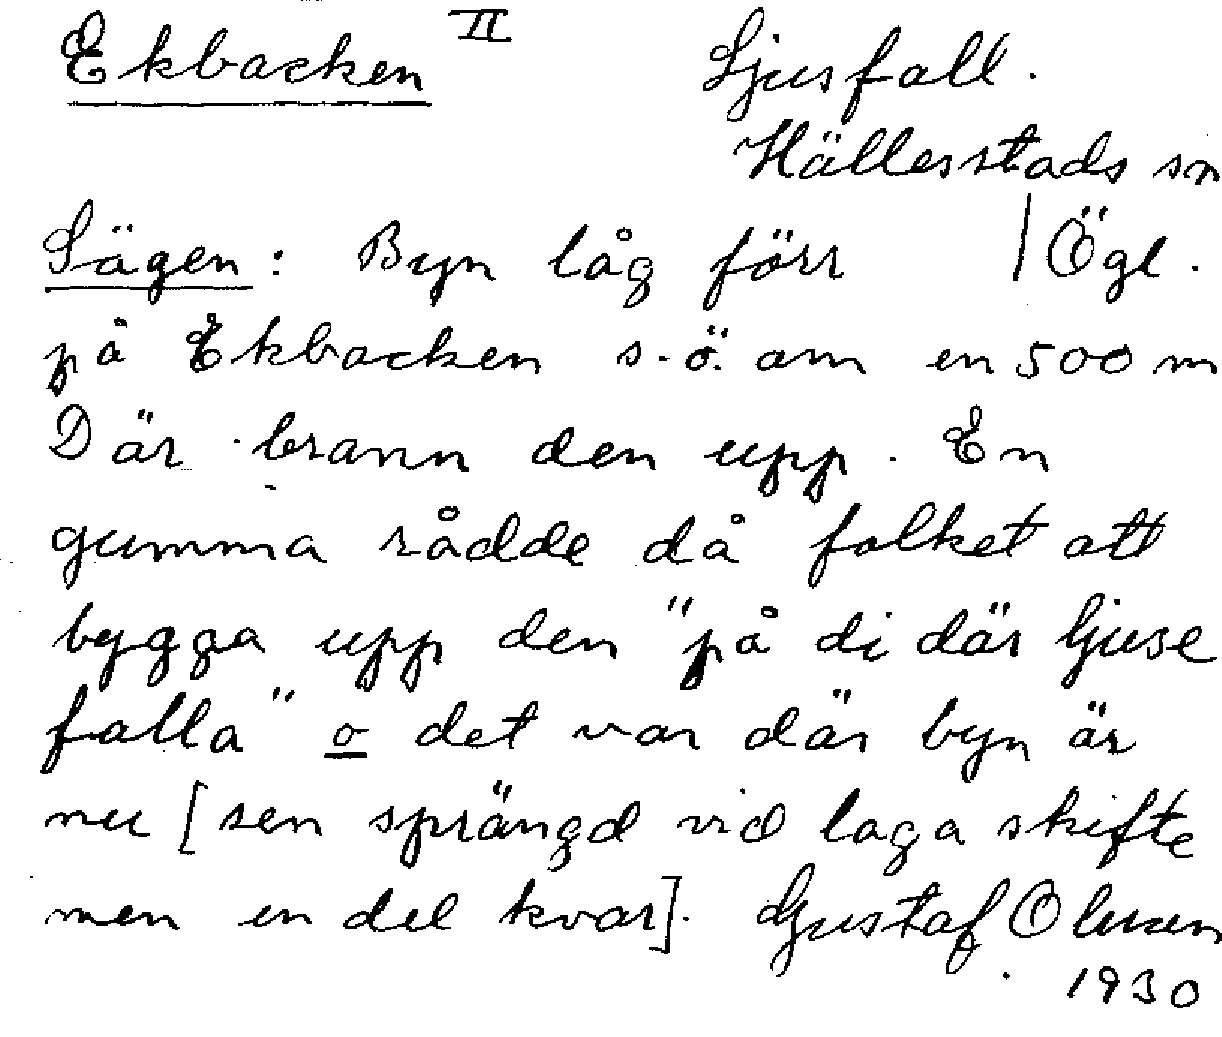 Ekbacken II Ljusfall.
Hällesstads sn
Sägen: Byn låg förr | Ögl.
på Ekbacken s.ö. om en 500 m
Där brann den upp. En
gumma rådde då folket att
bygga upp den "på di där ljuse
falla" o det var där byn är
nu [sen sprängd vid laga skifte
men en del kvar]. Gustaf
1930